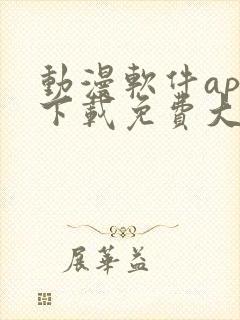 動漫軟件ap
下載免費大
展華益